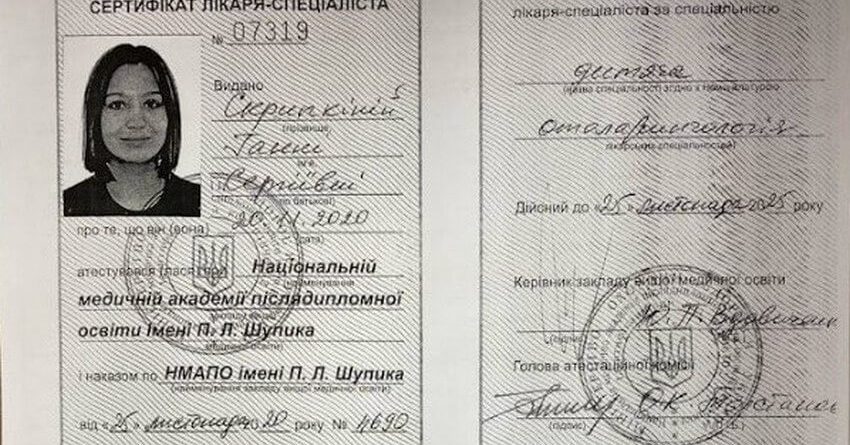 СЕРТИФІКАТ ЛІКАРЯ-СПЕЦІАЛІСТА
№ 07319
Видано
Скрипкіній
(прізвище,
Ганні
ім'я,
Сергіївні
по батькові)
20.11.2020
про те, що він (вона)
(дата)
атестувався (лася) при Національній
(найменування
медичній академії післядипломної
освіти імені П. Л. Шупика
медичної освіти)
і наказом по НМАПО імені П. Л. Шупика
(найменування закладу вищої медичної освіти)
від «25» листопада 2020 року № 4690
лікаря-спеціаліста за спеціальністю
дитяча
(назва спеціальності згідно з Номенклатурою
отоларингологія
лікарських спеціальностей)
Дійсний до «25» листопада 2025 року
Керівник закладу вищої медичної освіти
Ю. П.
(підпис)
Голова атестаційної комісії
(підпис)
(П.І.Б.)